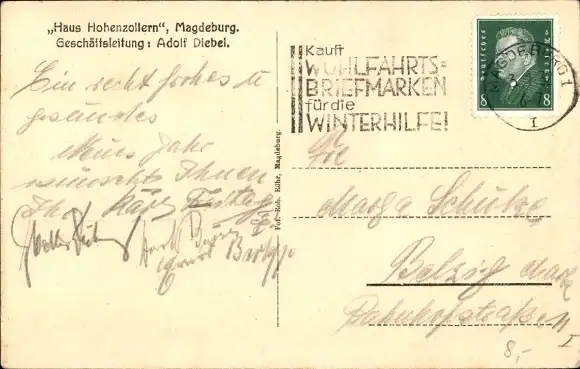 „Haus Hohenzollern“, Magdeburg.
Geschäftsleitung: Adolf Diebel.
Ein recht frohes u
gesundes
Neues Jahr
wünscht Ihnen
Ihr Karl Freitag
Kauft
WOHLFAHRTS=
BRIEFMARKEN
für die
WINTERHILFE!
MAGDEBURG 1
I
Deutsches Reich
8 8
Fot. Rob. Röhr, Magdeburg.
Marga Schulze
Belzig Mark
Bahnhofstraße
8,-